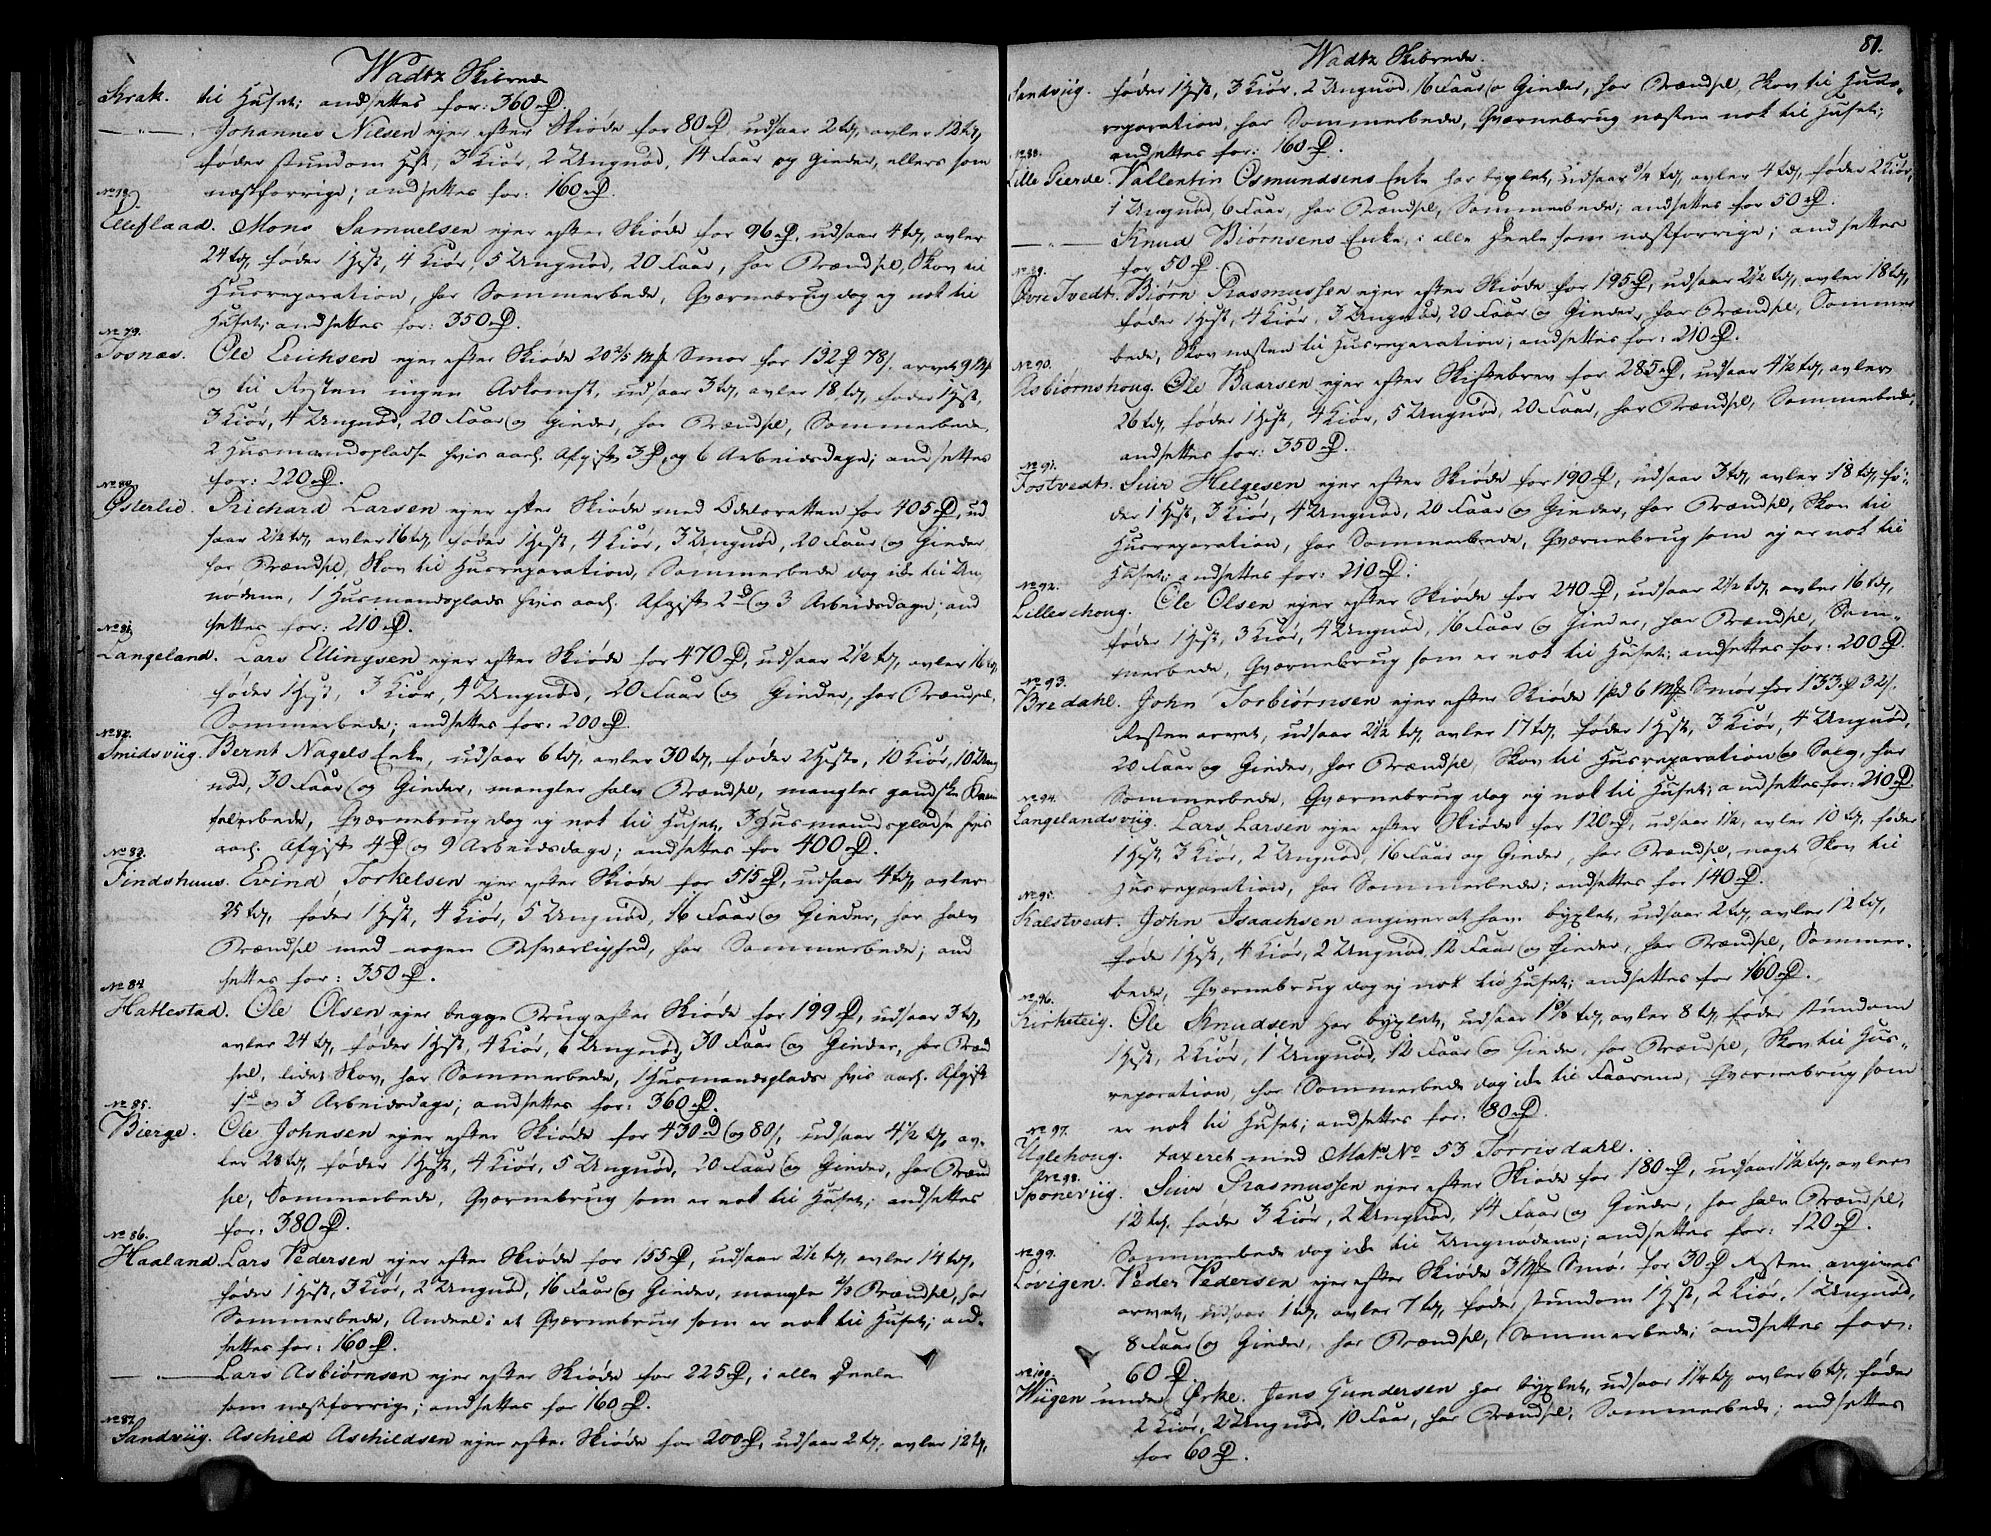 Wadtz Skibrede
Skrak. til Huset; andsettes for: 360 rD.
— " — Johannes Nilsen ejer efter Skiøde for 80 rD, udsaar 2 td, avler 12 td,
føder stundom Hest, 3 Kiør, 2 Ungnød, 14 Faar og Gieder, ellers som
næstforrige; andsettes for: 160 rD.
No 78.
Elleflaad. Mons Samuelsen ejer efter Skiøde for 96 rD, udsaar 4 td, avler
24 td, føder 1 Hest, 4 Kiør, 5 Ungnød, 20 Faar, har Brændsel, Skov til
Husreparation, har Sommerbede, Qværnebrug dog ej nok til
Huset; andsettes for: 350 rD.
No 79.
Tosnæs. Ole Erichsen ejer efter Skiøde 20 2/5 Mk Smør for 132 D 78 s. arvet 9 Mk
og til Resten ingen Adkomst, udsaar 3 td, avler 18 td, føder 1 Hest,
3 Kiør, 4 Ungnød, 20 Faar og Gieder, har Brændsel, Sommerbede,
2 Husmandspladse hvis aarl. Afgift 3 D, og 6 Arbeidsdage; andsettes
for: 220 rD.
No 80.
Østerlie. Richard Larsen ejer efter Skiøde med Odelsretten for 405 rD, ud
saar 2 1/2 td, avler 16 td, føder 1 Hest, 4 Kiør, 3 Ungnød, 20 Faar og Gieder
har Brændsel, Skov til Husreparation, Sommerbede dog ike til Un
nødene, 1 Husmandsplads hvis aarl. Afgift 2 D og 3 Arbeidsdage; and
settes for: 210 rD.
No 81.
Langeland. Lars Ellingsen ejer efter Skiøde for 470 rD, udsaar 2 1/2 td, avler 16 td,
føder 1 Hest, 3 Kiør, 4 Ungnød, 20 Faar og Gieder, har Brændsel,
Sommerbede; andsettes for: 200 rD.
No 82.
Smidsviig. Bernt Nagels Enke, udsaar 6 td, avler 30 td, føder 2 Heste, 10 Kiør, 10 Ung
nød, 30 Faar og Gieder, mangler halv Brændsel, mangler gandske
bede, Qværnebrug dog ej nok til Huset, 3 Husmandspladse hvis
aarl. Afgift 4 D og 9 Arbeidsdage; andsettes for 400 rD.
No 83.
Findshuus. Evind Torkelsen ejer efter Skiøde for 515 rD, udsaar 4 td, avler
25 td, føder 1 Hest, 4 Kiør, 5 Ungnød, 16 Faar og Gieder, har halv
Brændsel med nogen Besværlighed, har Sommerbede; and
settes for: 350 rD.
No 84
Hatlestad. Ole Olsen ejer begge Brug efter Skiøde for 199 rD, udsaar 3 td,
avler 24 td, føder 1 Hest, 4 Kiør, 6 Ungnød, 30 Faar og Gieder, har Brænd
sel, lidet Skov, har Sommerbede, 1 Husmandsplads hvis aarl. Afgift
og 3 Arbeidsdage; andsettes for: 360 rD.
No 85.
Bierge. Ole Johnsen ejer efter Skiøde for 430 rD og 80 s, udsaar 4 1/2 td, av-
ler 28 td, føder 1 Hest, 4 Kiør, 5 Ungnød, 20 Faar og Gieder, har Brænd
sel, Sommerbede, Qværnebrug som er nok til Huset; andsettes
for: 380 rD.
No 86.
Haaland Lars Pedersen ejer efter Skiøde for 155 rD, udsaar 2 1/2 td, avler 14 td,
føder 1 Hest, 3 Kiør, 2 Ungnød, 16 Faar og Gieder, mangler Brændsel, har
Sommerbede, Andeel i et Qværnebrug som er nok til Huset; and-
settes for: 160 rD.
— " — Lars Asbiørnsen ejer efter Skiøde for 225 rD, i alle Deele
som næstforrige; andsettes for 160 rD.
No 87.
Sandviig. Aschild Aschildsen ejer efter Skiøde for 200 rD, udsaar 2 td, avler 12 td,
Wadtz Skibrede.
81.
Sandviig. føder 1 Hest, 3 Kiør, 2 Ungnød, 16 Faar og Gieder, har Brændsel, Skov til Huus-
reparation, har Sommerbede, Qværnebrug næsten nok til Huset;
andsettes for: 160 rD.
No 88.
Lille Gierde. Vallentin Osmundsens Enke har byxlet, udsaar 3/4 td, avler 4 td, føder 2 Kiør,
1 Ungnød, 6 Faar, har Brændsel, Sommerbede; andsettes for 50 rD.
— " — Knud Biørnsens Enke, i alle Deele som næstforrige; andsettes
for 50 rD.
No 89.
Øvre Tvedt. Biørn Rasmussen ejer efter Skiøde for 195 rD, udsaar 2 1/2 td, avler 18 td,
føder 1 Hest, 4 Kiør, 3 Ungnød, 20 Faar og Gieder, har Brændsel, Sommer
bede, Skov næsten til Husreparation; andsettes for: 210 rD.
No 90.
Asbiørnshoug. Ole Baarsen ejer efter Skiftebrev for 285 rD, udsaar 4 1/2 td, avler
26 td, føder 1 Hest, 4 Kiør, 5 Ungnød, 20 Faar, har Brændsel, Sommerbede,
andsettes for: 350 rD.
No 91.
Tostvedt. Siur Helgesen ejer efter Skiøde for 190 rD, udsaar 3 td, avler 18 td, fø-
der 1 Hest, 3 Kiør, 4 Ungnød, 20 Faar og Gieder, har Brændsel, Skov til
Husreparation, har Sommerbede, Qværnebrug som ej er nok til
Huset; andsettes for: 210 rD.
No 92.
Lilleschoug. Ole Olsen ejer efter Skiøde for 240 rD, udsaar 2 1/2 td, avler 16 td,
føder 1 Hest, 3 Kiør, 4 Ungnød, 16 Faar og Gieder, har Brændsel, Som-
merbede, Qværnebrug som er nok til Huset; andsettes for: 200 rD.
No 93.
Bredahl. John Torbiørnsen ejer efter Skiøde 1 pd 6 Mk Smør for 133 D 32 s.
Resten arvet, udsaar 2 1/2 td, avler 17 td, føder 1 Hest, 3 Kiør, 4 Ungnød,
20 Faar og Gieder, har Brændsel, Skov til Husreparation og Salg, har
Sommerbede, Qværnebrug dog ej nok til Huset; andsettes for: 210 rD
No 94.
Langelandsviig. Lars Larsen ejer efter Skiøde for 120 rD, udsaar 1 1/2, avler 10 td, føder
1 Hest, 3 Kiør, 2 Ungnød, 16 Faar og Gieder, har Brændsel, noget Skov til
Husreparation, har Sommerbede; andsettes for 140 rD.
No 95.
Kalstvedt. John Isaachsen angiver at have byxlet, udsaar 2 td, avler 12 td,
føde 1 Hest, 4 Kiør, 2 Ungnød, 12 Faar og Gieder, har Brændsel, Sommer-
bede, Qværnebrug dog ej nok til Huset; andsettes for 160 rD.
No 96.
Kirketeig. Ole Knudsen har byxlet, udsaar 1 td, avler 8 td, føder stundom
1 Hest, 2 Kiør, 1 Ungnød, 12 Faar og Gieder, har Brændsel, Skov til Hus-
reparation, har Sommerbede dog ike til Faarene, Qværnebrug som
er nok til Huset; andsettes for: 80 rD.
No 97.
Uglehoug. taxeret med Mat. No 53 Torrisdahl.
No 98.
Sponeviig. Siur Rasmussen ejer efter Skiøde for 180 rD, udsaar 1 1/2 td, avler
12 td, føder 3 Kiør, 2 Ungnød, 14 Faar og Gieder, har halv Brændsel,
Sommerbede dog ike til Ungnødene; andsettes for: 120 rD.
No 99.
Løvigen. Peder Pedersen ejer efter Skiøde 3 Mk Smør for 30 D Resten angives
arvet, udsaar 1 td, avler 7 td, føder stundom 1 Hest, 2 Kiør, 1 Ungnød,
8 Faar og Gieder, har Brændsel, Sommerbede; andsettes for:
60 rD
No 100.
Wiigen under Ørke. Jens Gundersen har byxlet, udsaar 1 1/4 td, avler 6 td, føder
2 Kiør, 2 Ungnød, 10 Faar, har Brændsel, Sommerbede; andsettes
for 60 rD.